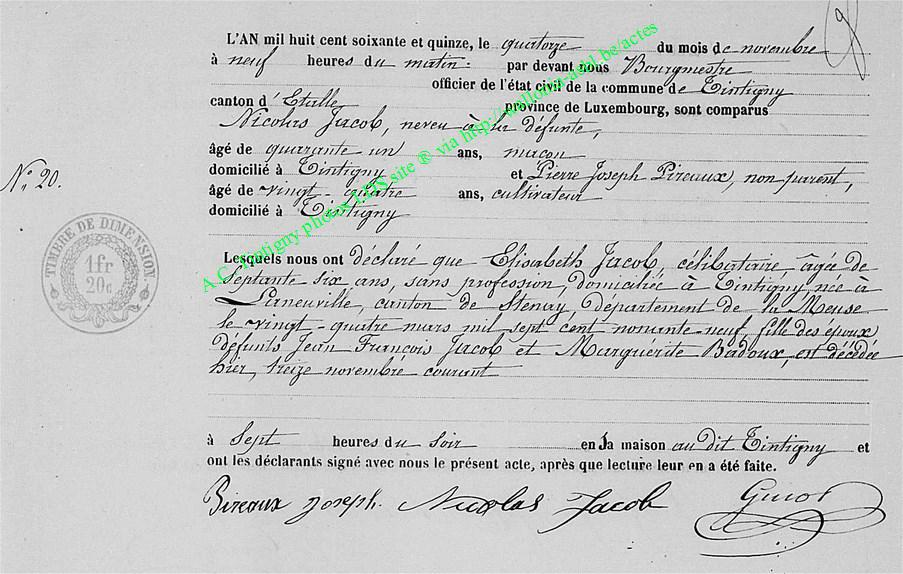 L'AN mil huit cent soixante et quinze, le quatorze du mois de novembre
à neuf heures du matin par devant nous Bourgmestre
officier de l'état civil de la commune de Tintigny
canton d'Etalle province de Luxembourg, sont comparus
Nicolas Jacob, neveu à la défunte,
âgé de quarante un ans, maçon
domicilié à Tintigny et Pierre Joseph Pireaux, non parent,
âgé de vingt-quatre ans, cultivateur
domicilié à Tintigny
N° 20.
TIMBRE DE DIMENSION
1 fr
20 c
Lesquels nous ont déclaré que Elisabeth Jacob, célibataire, âgée de
Septante six ans, sans profession domiciliée à Tintigny née à
Laneuville, canton de Stenay, département de la Meuse
le vingt-quatre mars mil sept cent nonante-neuf, fille des époux
défunts Jean François Jacob et Marguérite Badoux, est décédée
hier, treize novembre courant
à Sept heures du soir en sa maison au dit Tintigny et
ont les déclarants signé avec nous le présent acte, après que lecture leur en a été faite.
Pireaux Joseph. Nicolas Jacob Guiot
A.C. Tintigny photos LDS site ® via http://wallonia-asbl.be/actes
9